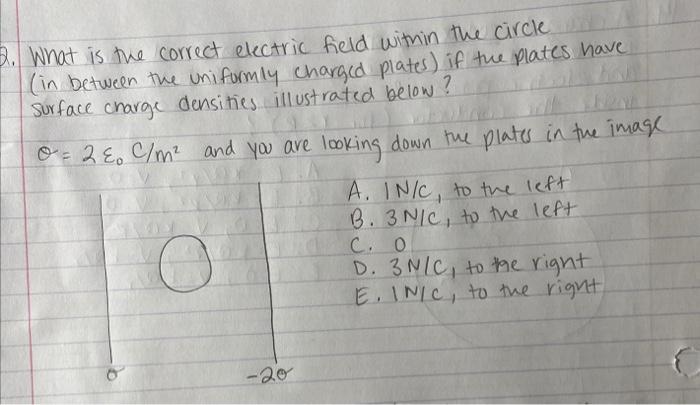 2. What is the correct electric field within the circle
(in between the uniformly charged plates) if the plates have
surface charge densities illustrated below?
σ = 2 ε₀ C/m² and you are looking down the plates in the image
A. 1N/C, to the left
B. 3N/C, to the left
C. 0
D. 3N/C, to the right
E. 1N/C, to the right
σ
-2σ